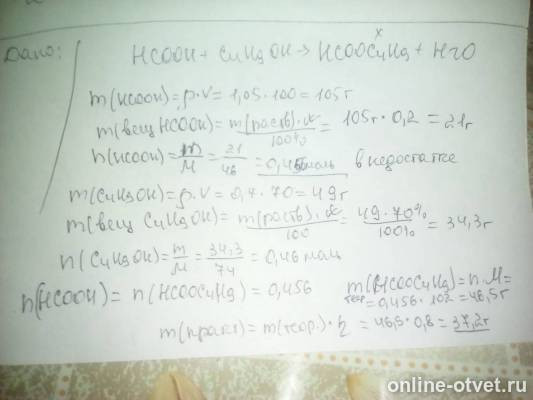 Дано:
x
HCOOH + C4H9OH → HCOOC4H9 + H2O
m(HCOOH) = ρ·V = 1,05·100 = 105г
m(вещ HCOOH) = m(раств)·w / 100% = 105г·0,2 = 21г
n(HCOOH) = m/M = 21/46 = 0,456моль в недостатке
m(C4H9OH) = ρ·V = 0,7·70 = 49г
m(вещ C4H9OH) = m(раств)·w / 100 = 49·70% / 100% = 34,3г
n(C4H9OH) = m/M = 34,3/74 = 0,46 моль
n(HCOOH) = n(HCOOC4H9) = 0,456
m(HCOOC4H9) = n·M =
теор = 0,456·102 = 46,5г
m(практ) = m(теор.)·η = 46,5·0,8 = 37,2г
online-otvet.ru